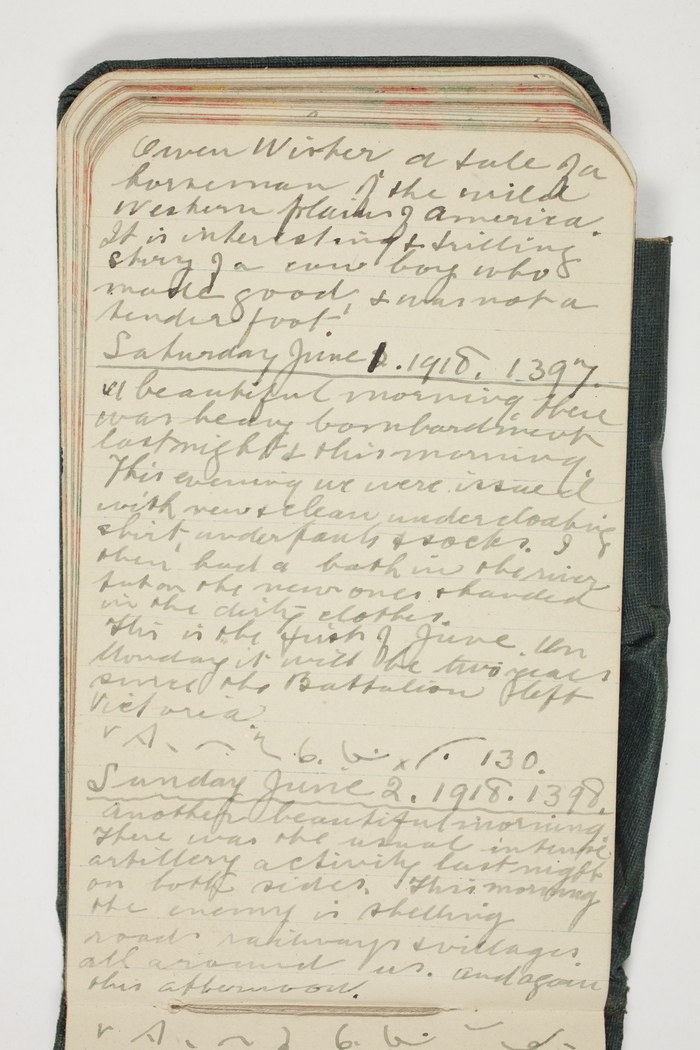 Owen Wister a tale of a
horseman of the wild
Western plains of America.
It is interesting & trilling
story of a cow boy who
made good, & was not a
tender foot'
Saturday June 1. 1918. 1397.
A beautiful morning, there
was heavy bombardment
last night & this morning.
This evening we were issued
with new & clean undercloathing
shirt, underpants & socks. I
then had a bath in the river
put on the new ones & handed
in the dirty clothes.
This is the first of June. On
Monday it will be two years
since the Battalion left
Victoria.
130.
Sunday June 2. 1918. 1398.
Another beautiful morning.
There was the usual intense
artillery activity last night
on both sides. This morning
the enemy is shelling
roads railways & villages
all around us. and again
this afternoon.